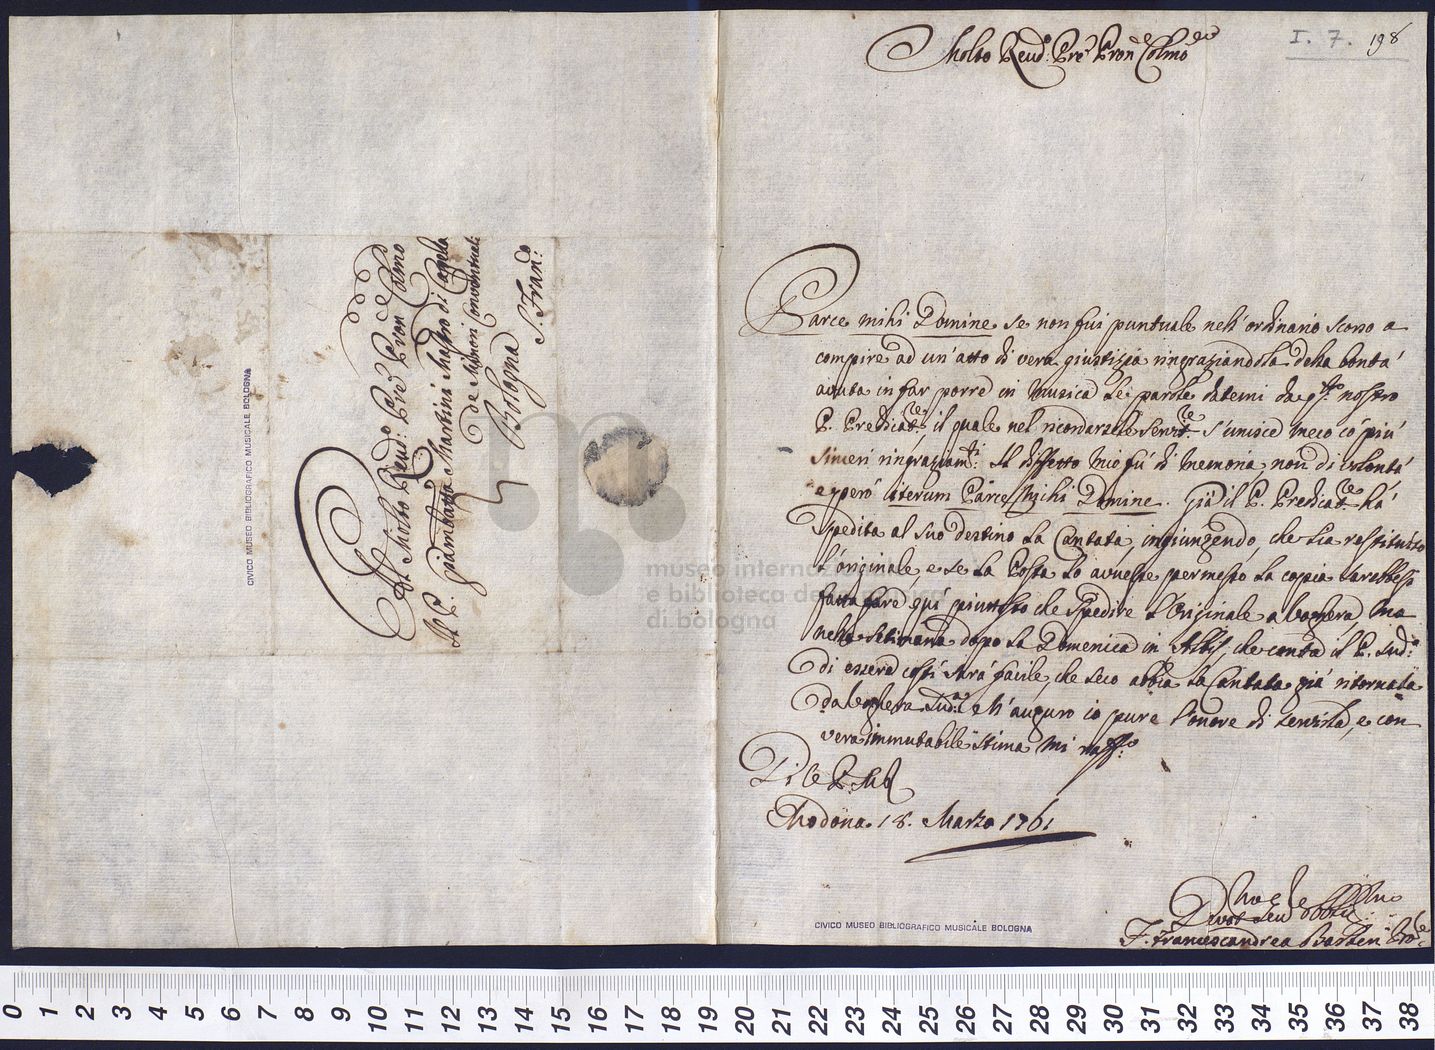 Molto Reud: Pre Pron Colmo
I. 7. 198
Parce mihi Domine se non fui puntuale nell'ordinario scorso a
compire ad un'atto di vera giustizia ringraziandola della bontà
avuta in far porre in musica le parole datemi da qto nostro
P. Predicatre il quale nel ricordarsele Servre s'unisce meco co' più
sinceri ringraziamti: Il diffetto mio fù di memoria non di volontà
e però iterum Parce Mihi Domine. Già il P. Predicatre hà
spedita al suo destino la Cantata, ingiungendo, che sia restituito
l'originale, e se la Posta lo avesse permesso la copia sarebbesi
fatta fare quì piuttosto che spedire l'originale a Voghera, ma
nella settimana dopo la Domenica in Albis, che conta il P. Sudo:
di essere costì sarà facile, che seco abbia la Cantata già ritornata
da Voghera Suda: e l'auguro io pure l'onore di servirla, e con
vera immutabile stima mi raffo:
Di V P. M R
Modona 18. Marzo 1761
Devot Seu Obbl
F. Francescandrea Barberi
Al Molto Reudo: Pre Pron Colmo
Il P. Giambatta Martini Mastro di Capella
de Signori Conventuali
Bologna
S. Frano:
CIVICO MUSEO BIBLIOGRAFICO MUSICALE BOLOGNA
CIVICO MUSEO BIBLIOGRAFICO MUSICALE BOLOGNA
museo internazionale
e biblioteca della musica
di bologna
0 1 2 3 4 5 6 7 8 9 10 11 12 13 14 15 16 17 18 19 20 21 22 23 24 25 26 27 28 29 30 31 32 33 34 35 36 37 38